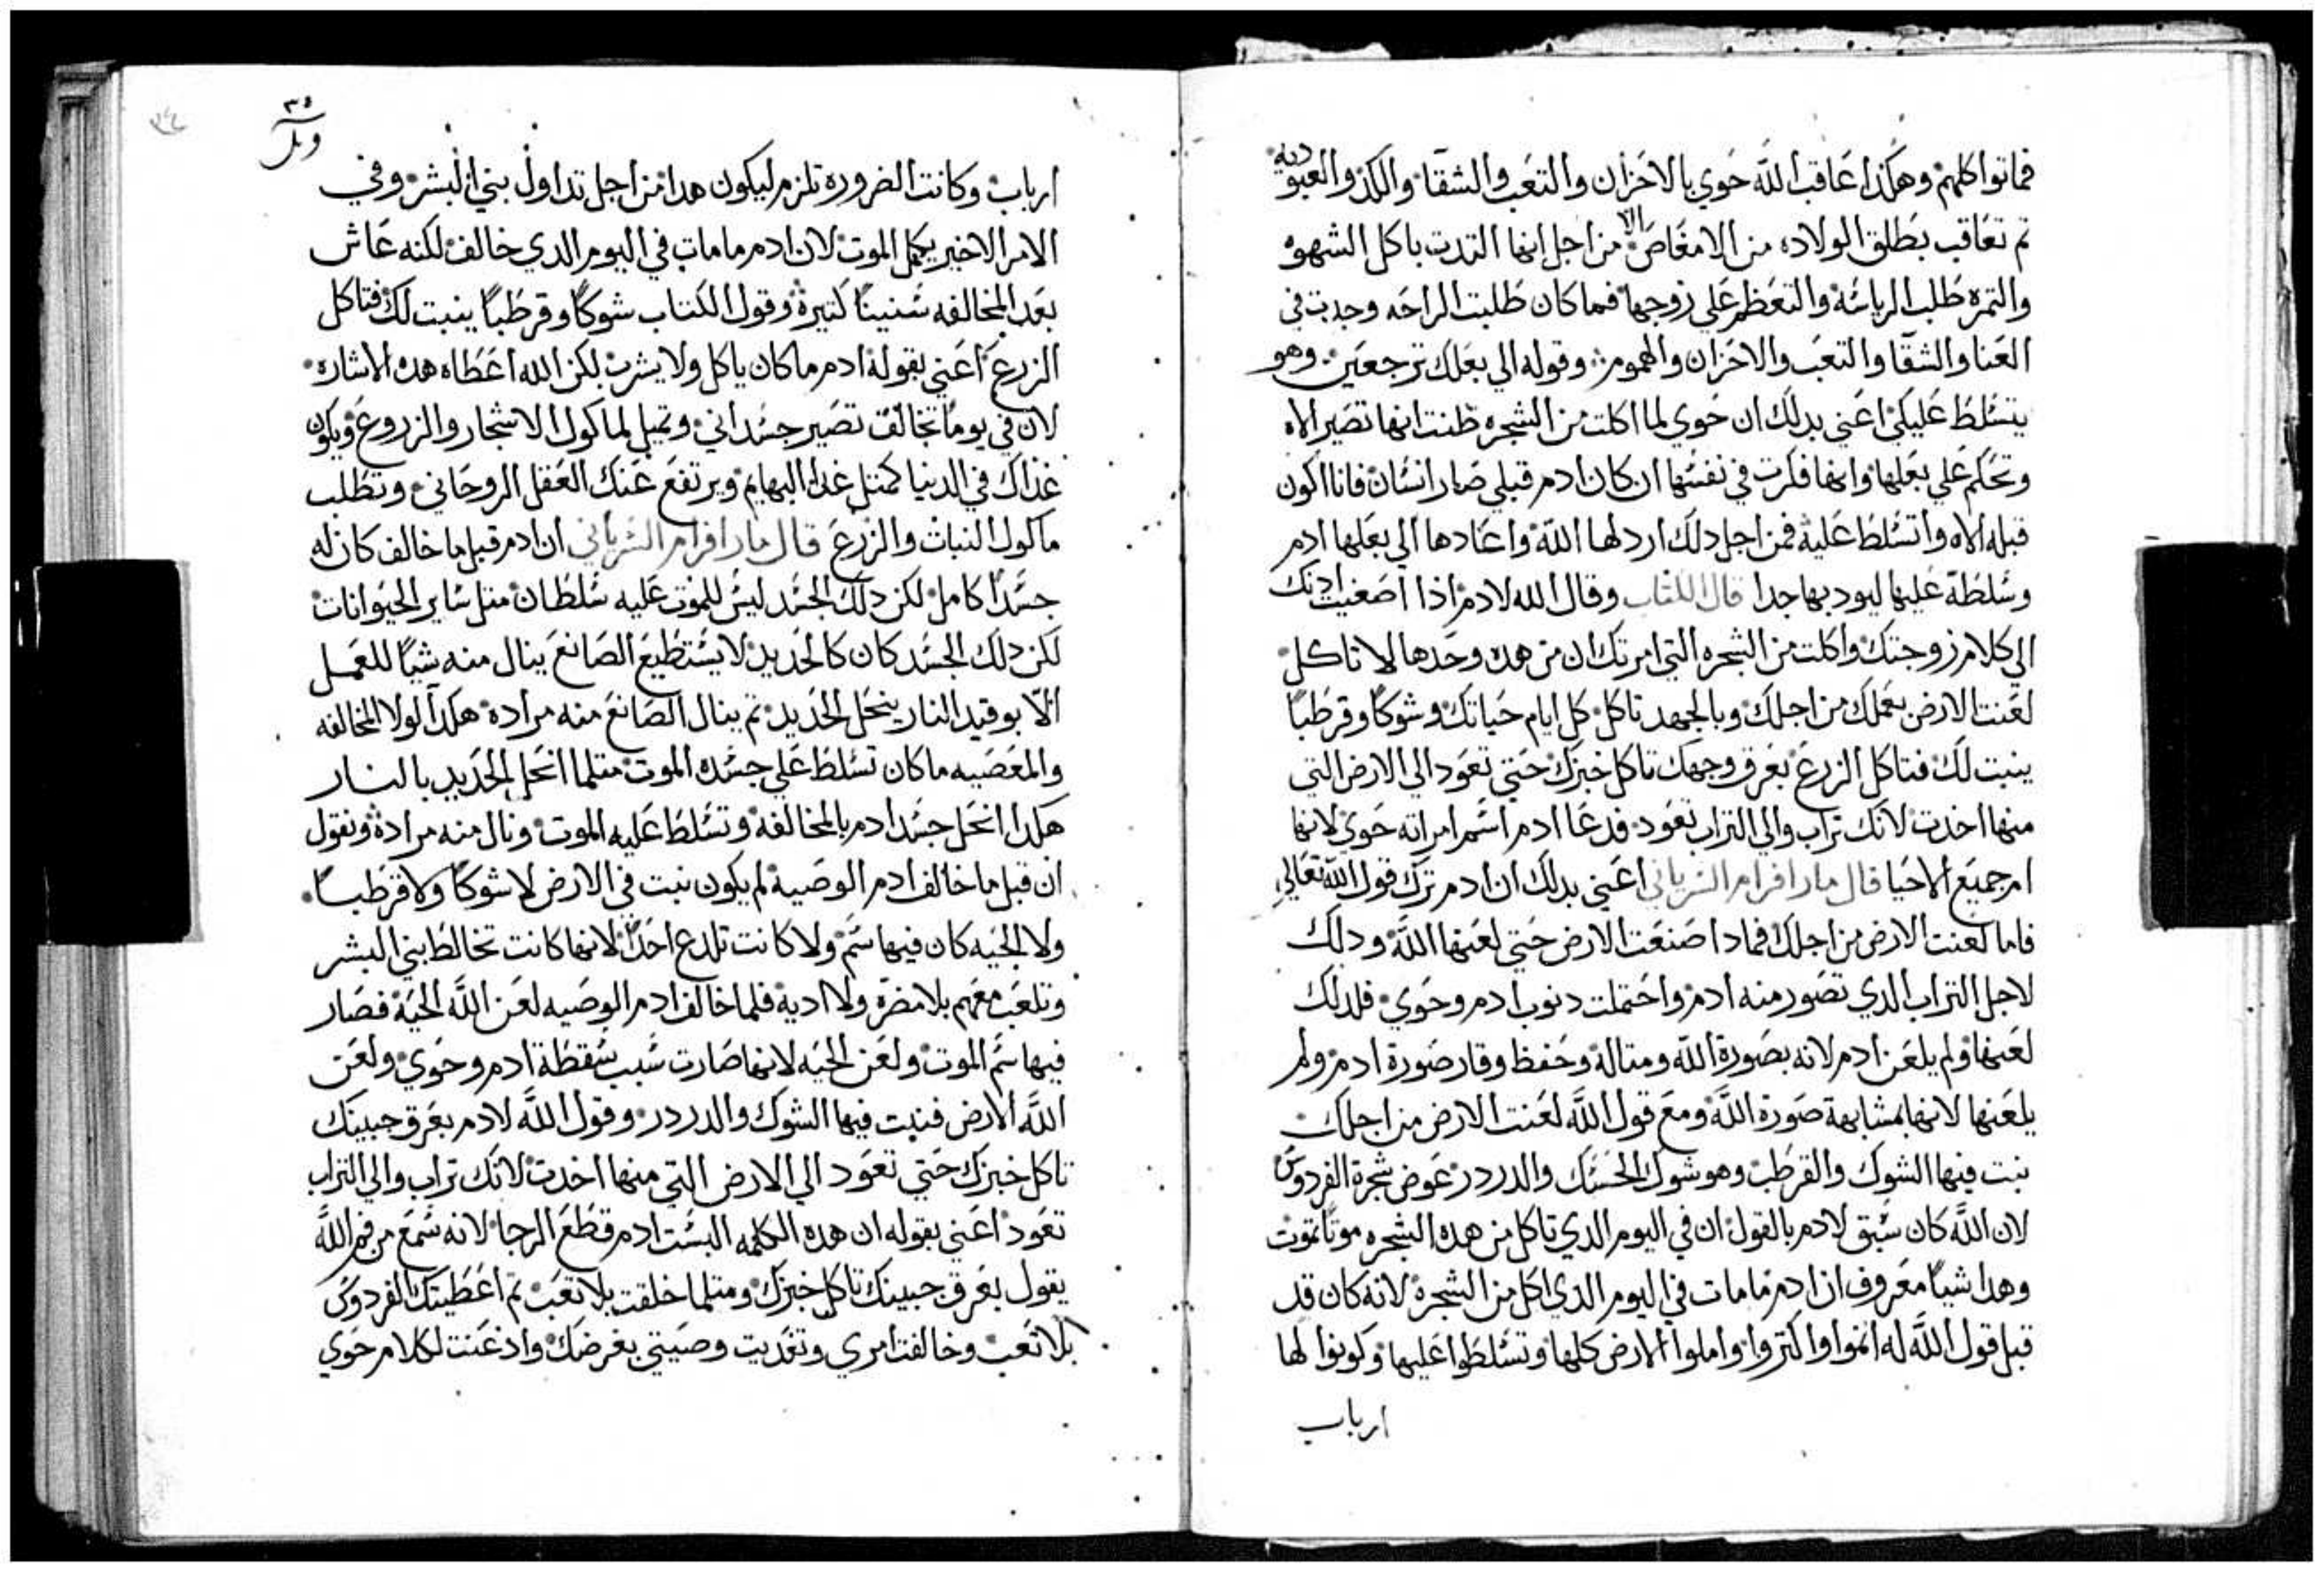 فماتوا كلهم وهكدا عاقب الله حوي بالاحزان والتعب والشقا والكد والعبوديه
تم تعاقب بطلق الولاده من الامغاص الا من اجل انها التدت باكل الشهوه
والتمره طلب الرياسه والتعظم علي زوجها فما كان طلبت الراحه وجدت في
العنا والشقا والتعب والاحزان والهموم وقوله الي بعلك ترجعين وهو
يتسلط عليكي اعني بدلك ان حوي لما اكلت من الشجره ظنت انها تصير الاه
وتحكم علي بعلها وانها فكرت في نفسها ان كان ادم قبلي صار انسان فانا اكون
قبله الاه واتسلط عليه فمن اجل دلك اردلها الله واعادها الي بعلها ادم
وسلطة عليها ليود بها جدا قال الكتاب وقال الله لادم اذا اصغيت ادنك
الي كلام زوجتك واكلت من الشجره التي امرتك ان من هده وحدها لا تاكل
لعنت الارض بعملك من اجلك وبالجهد تاكل كل ايام حياتك وشوكا وقرطبا
ينبت لك فتاكل الزرع بعرق وجهك تاكل خبزك حتي تعود الي الارض التي
منها اخدت لانك تراب والي التراب تعود فدعا ادم اسم امراته حوي لانها
ام جميع الاحيا قال مار افرام السرياني اعني بدلك ان ادم ترك قول الله تعالي
فاما لعنت الارض من اجلك فمادا صنعت الارض حتي لعنها الله ودلك
لاجل التراب الدي تصور منه ادم واحتملت دنوب ادم وحوي فلدلك
لعنها ولم يلعن ادم لانه بصورة الله ومتاله وحفظ وقار صورة ادم ولم
يلعنها لانها بمشابهة صورة الله ومع قول الله لعنت الارض من اجلك
نبت فيها الشوك والقرطب وهو شوك الحسك والدردر عوض شجرة الفردوس
لان الله كان سبق لادم بالقول ان في اليوم الدي تاكل من هده الشجره موتا تموت
وهدا شيا معروف ان ادم ما مات في اليوم الدي اكل من الشجره لانه كان قد
قبل قول الله له انموا واكتروا واملوا الارض كلها وتسلطوا عليها وكونوا لها
ارباب
٣٤
ارباب وكانت الضروره تلزم ليكون هدا من اجل تداول بني البشر وفي
الامر الاخير يكمل الموت لان ادم ما مات في اليوم الدي خالف لكنه عاش
بعد المخالفه سنينا كتيرة وقول الكتاب شوكا وقرطبا ينبت لك فتاكل
الزرع اعني بقوله ادم ما كان ياكل ولا يشرب لكن الله اعطاه هده الاشاره
لان في يوما تخالف تصير جسداني وتميل لماكول الاشجار والزروع ويكون
غداك في الدنيا كمتل غدا البهايم ويرتفع عنك العقل الروحاني وتطلب
ماكول النبات والزرع قال مار افرام السرياني ان ادم قبل ما خالف كان له
جسدا كامل لكن دلك الجسد ليس للموت عليه سلطان متل ساير الحيوانات
لكن دلك الجسد كان كالحديد لا يستطيع الصانع ينال منه شيا للعمل
الا بوقيد النار ينحل الحديد تم ينال الصانع منه مراده هكدا لولا المخالفه
والمعصيه ما كان تسلط علي جسده الموت متلما انحل الحديد بالنار
هكدا انحل جسد ادم بالمخالفه وتسلط عليه الموت ونال منه مرادة ونقول
ان قبل ما خالف ادم الوصية لم يكون نبت في الارض لا شوكا ولا قرطبا
ولا الحيه كان فيها سم ولا كانت تلدع احدا لانها كانت تخالط بني البشر
وتلعب معهم بلا مضرة ولا ادية فلما خالف ادم الوصيه لعن الله الحية فصار
فيها سم الموت ولعن الحيه لانها صارت سبب سقطة ادم وحوي ولعن
الله الارض فنبت فيها الشوك والدردر وقول الله لادم بعرق جبينك
تاكل خبزك حتي تعود الي الارض التي منها اخدت لانك تراب والي التراب
تعود اعني بقوله ان هده الكلمه البست ادم قطع الرجا لانه سمع من فم الله
يقول بعرق جبينك تاكل خبزك ومتلما خلقت بلا تعب تم اعطيتك الفردوس
بلا تعب وخالفت امري وتعديت وصيتي بغرضك وادعنت لكلام حوي